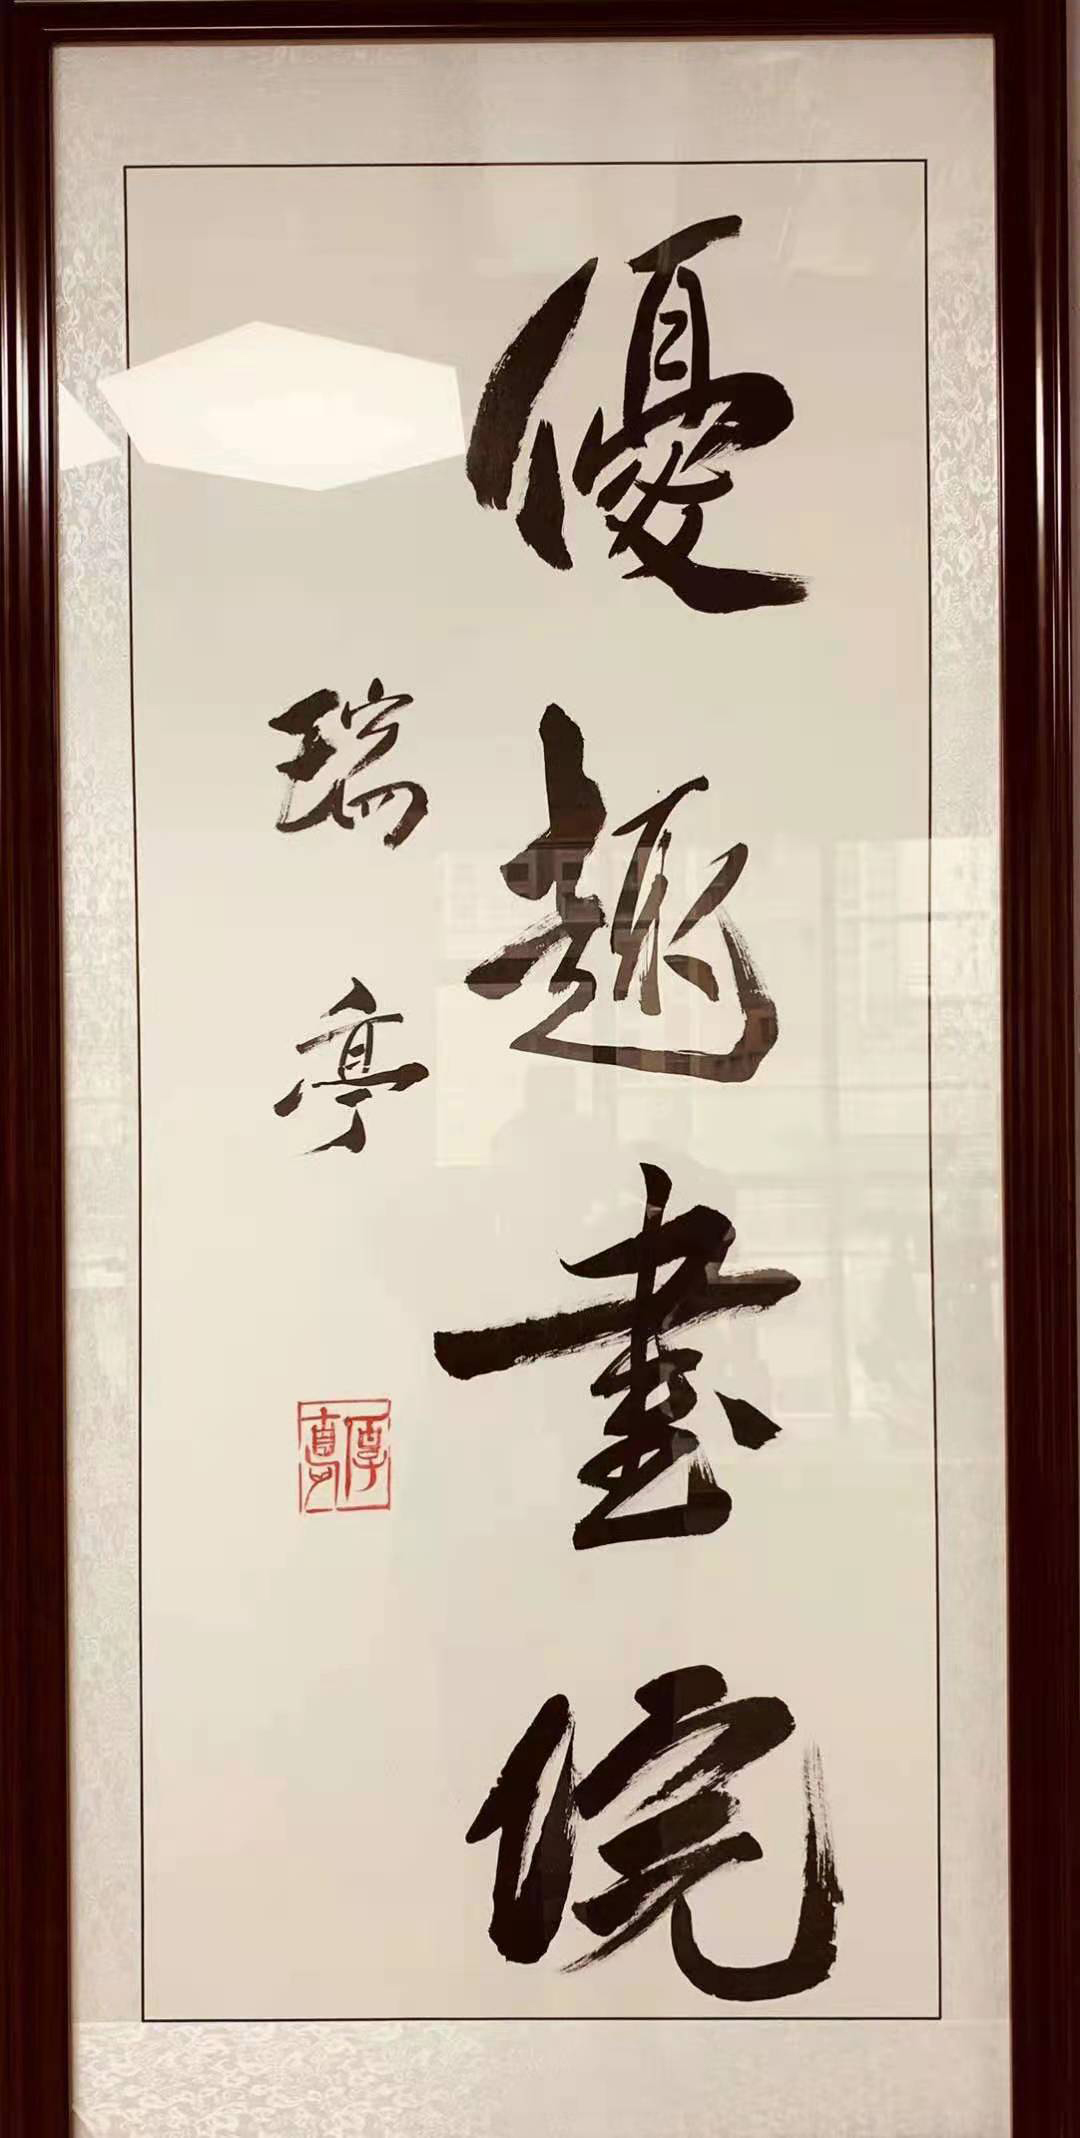 優趣書院
瑞亭